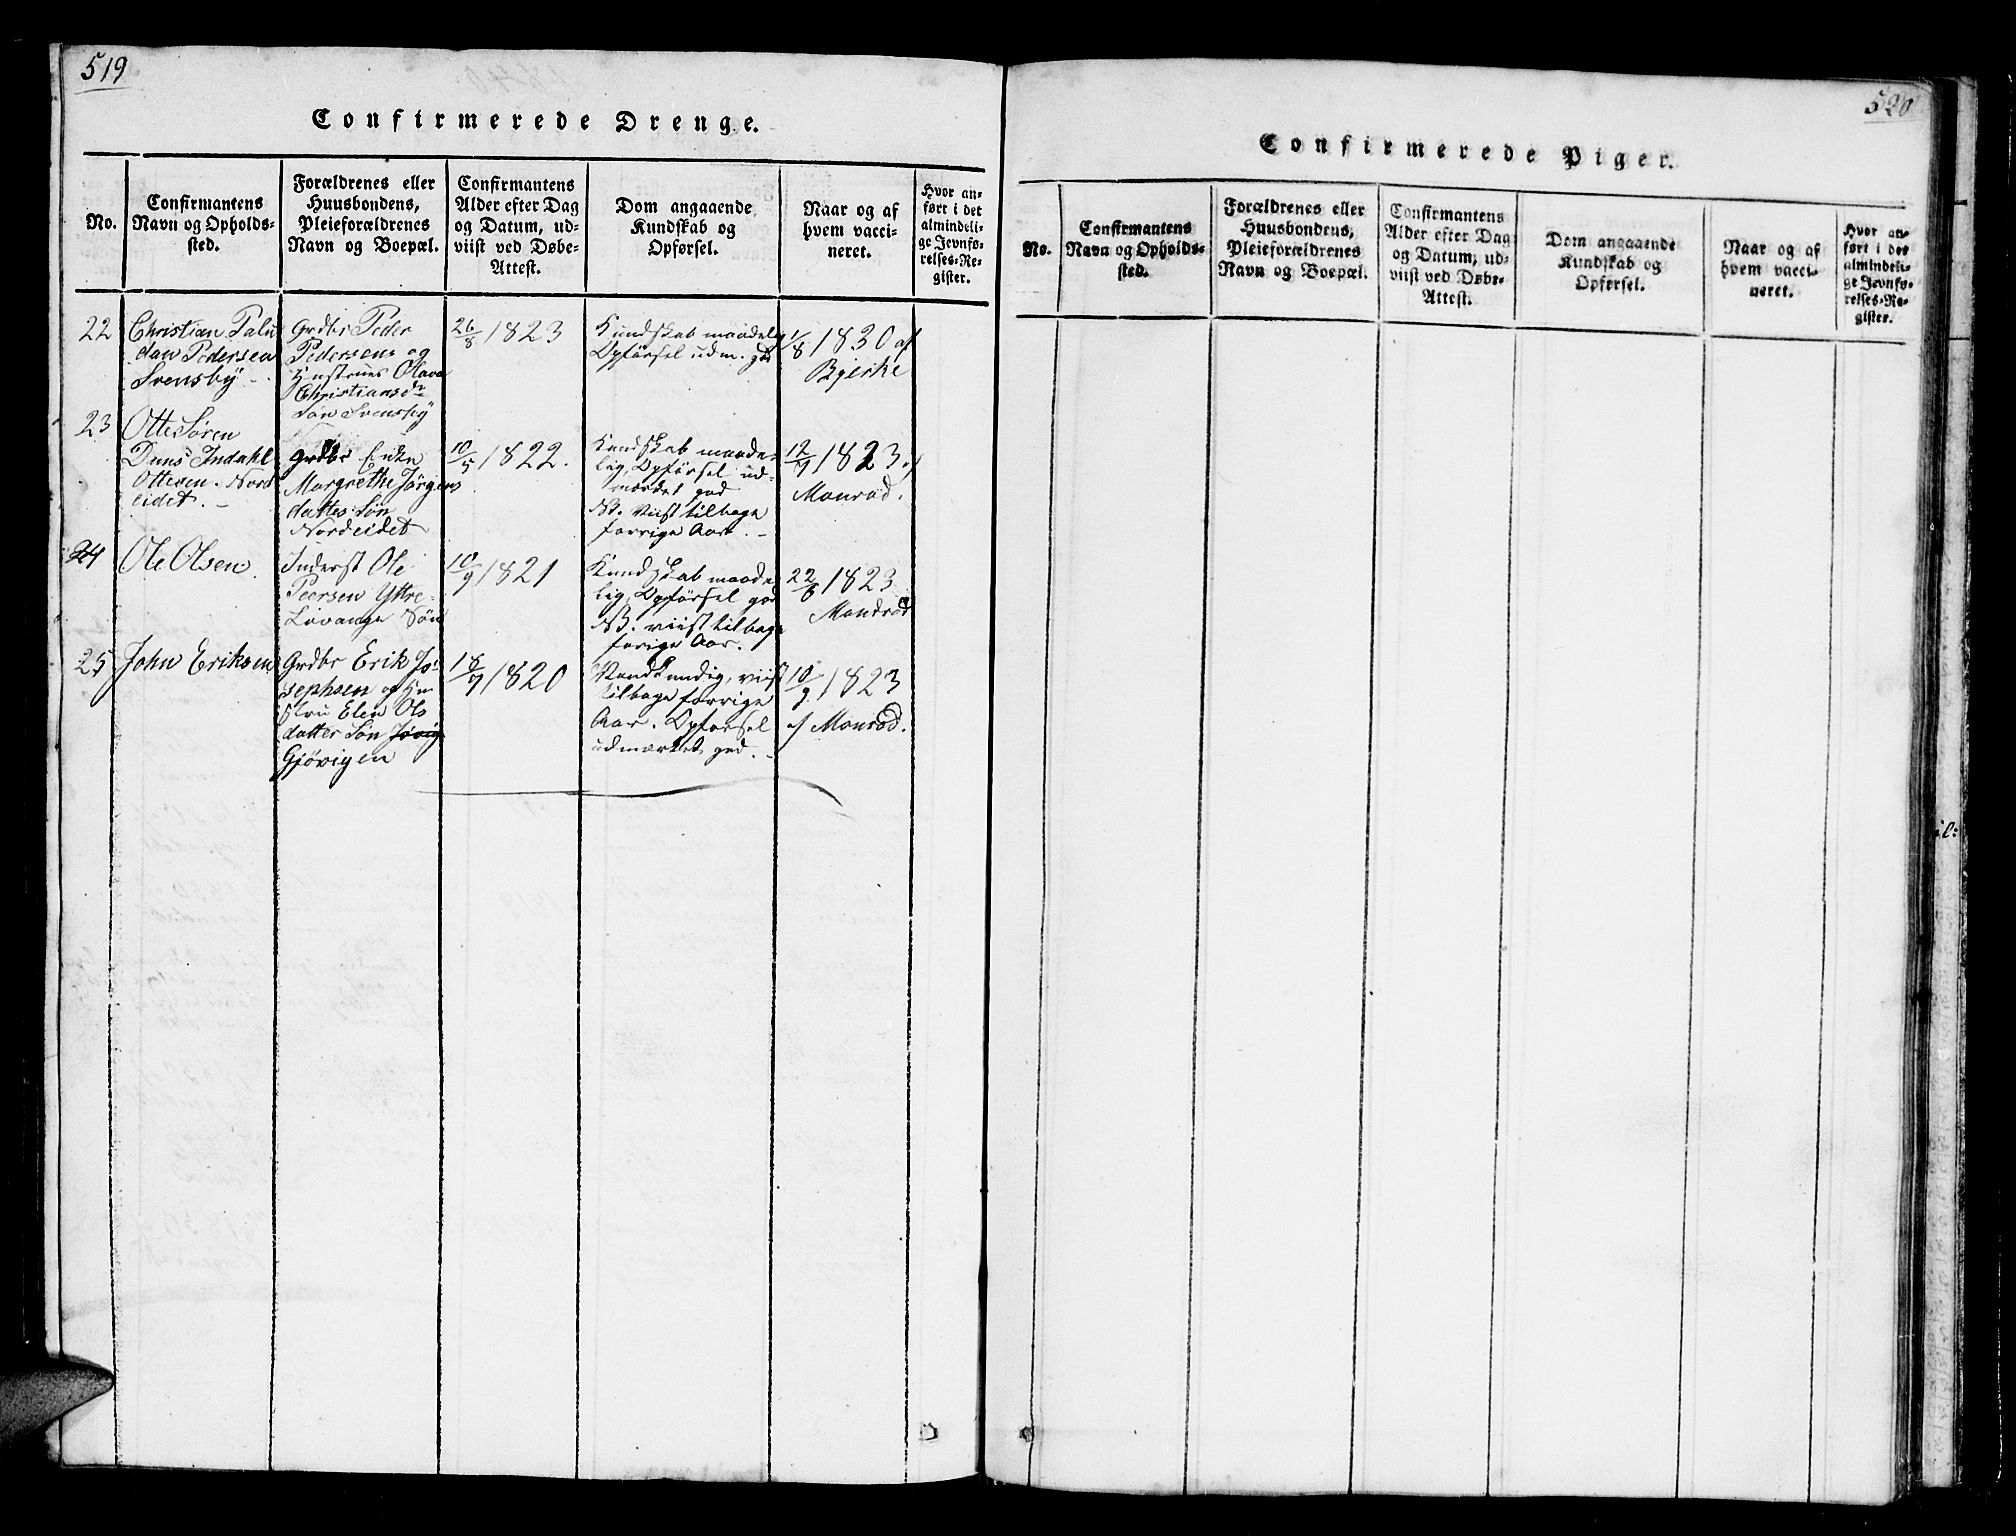 519
Confirmerede Drenge.
No.
Confirmantens
Navn og Opholds-
sted.
Forældrenes eller
Huusbondens,
Pleieforældrenes
Navn og Boepæl.
Confirmantens
Alder efter Dag
og Datum, ud-
viist ved Døbe-
Attest.
Dom angaaende
Kundskab og
Opførsel.
Naar og af
hvem vacci-
neret.
Hvor an-
ført i det
almindeli-
ge Jevnfø-
relses-Re-
gister.
22
Christian Palu
dan Pedersen
Svensby
Grdbr Peder
Pedersens og
Hustrues Olava
Christiansd
Søn Svensby
26/8 1823
Kundskab maadelig
Opførsel udm. gd
1/8 1830 af
Bjerke
23
Otte Søren
Indahl
Ottesen Nord
eidet.
Grdbr Enke
Margrethe Jørgens
datters Søn
Nordeidet
10/5 1822.
Kundskab maade-
lig, Opførsel ud-
mærket god
NB. viist tilbage
forrige Aar.
12/7 1823 af
Monrad.
24
Ole Olsen
Inderst Ole
Peersen Yttre
Lavangs Søn
10/9 1821
Kundskab maade
lig, Opførsel god
NB. viist tilbage
forige Aar.
22/6 1823
Mondrad
25
John Eriksen
Grdbr Erik Jo
sephsen og Hu
stru Elen Ols
datter Søn Jøvig
Gjövigen
18/7 1820
viist
tilbage forrige
Aar. Opførsel
udmærket god.
10/9 1823
af Monrad.
520
Confirmerede Piger.
No.
Confirmantens
Navn og Opholds-
sted.
Forældrenes eller
Huusbondens,
Pleieforældrenes
Navn og Boepæl.
Confirmantens
Alder efter Dag
og Datum, ud-
viist ved Døbe-
Attest.
Dom angaaende
Kundskab og
Opførsel.
Naar og af
hvem vacci-
neret.
Hvor an-
ført i det
almindeli-
ge Jevnfø-
relses-Re-
gister.